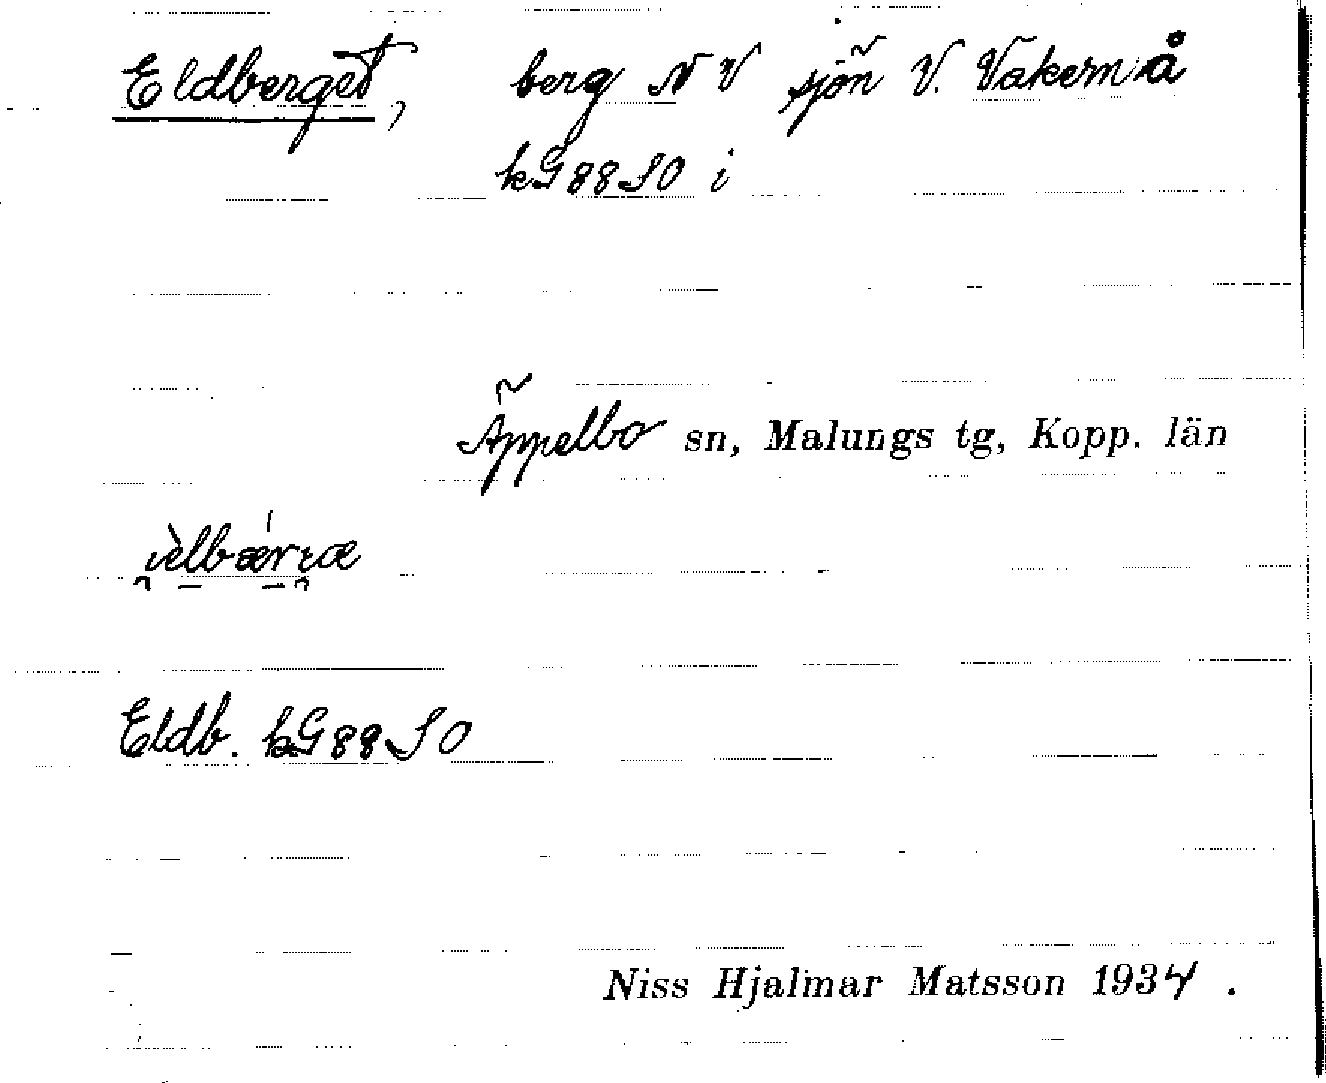 Eldberget, berg NV sjön V. Vakern å
kG 88 SO i
Äppelbo sn, Malungs tg, Kopp. län
Eldb. kG 88 SO
Niss Hjalmar Matsson 1934.